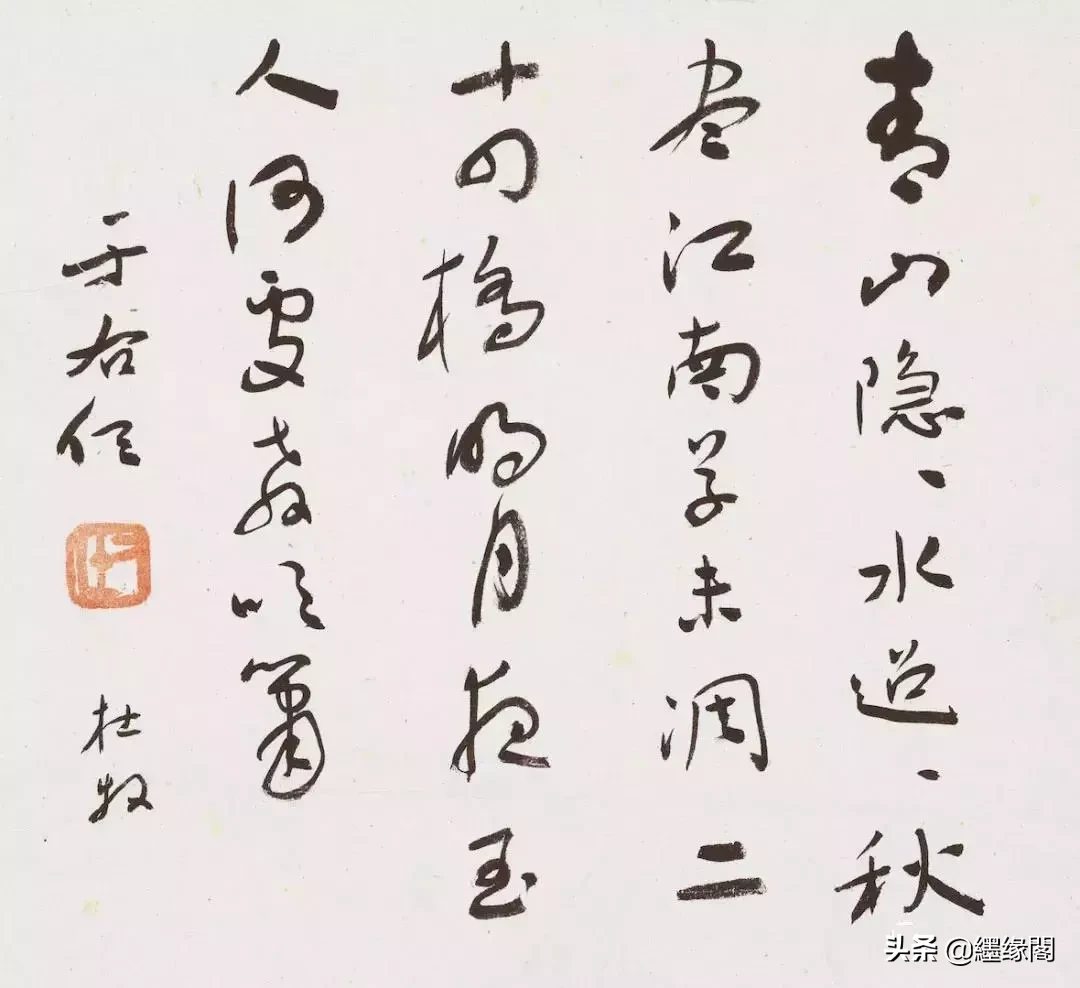 青山隐、水迢、秋
尽江南草未凋二
十四橋明月夜玉
人何处教吹簫
于右任
杜牧
头条 @纆缘閣